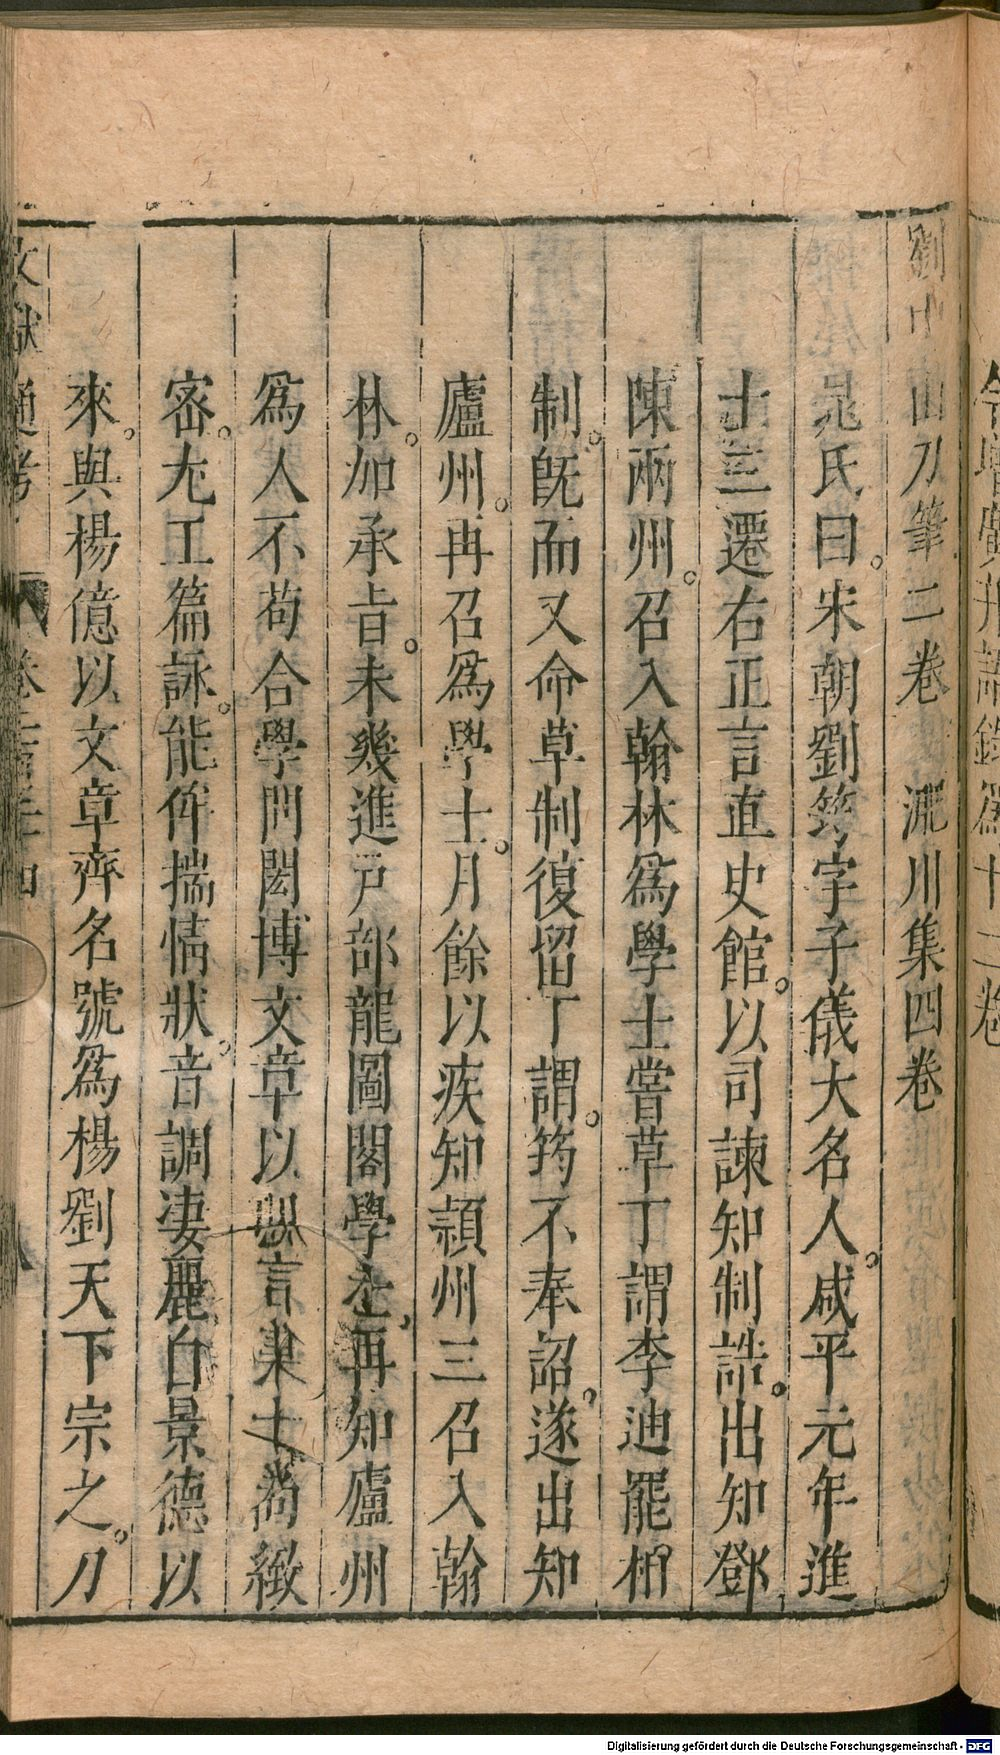 劉中山刀筆二卷 泥川集四卷
晁氏曰。宋朝劉筠字子儀大名人。咸平元年進
士三遷右正言直史館。以司諫知制誥。出知鄧
陳兩州。召入翰林爲學士嘗草丁謂李迪罷相
制。旣而又命草制復留丁謂。筠不奉詔。遂出知
廬州。再召爲學士。月餘以疾知潁州三召入翰
林。加承旨。未幾進戸部龍圖閣學士。再知廬州
爲人不苟合學問閎博文章以理言業尤緻
密。尤工篇詠。能侔揣情狀。音調凄麗自景德以
來。與楊億以文章齊名號爲楊劉天下宗之。刀
文獻通考 卷二百三十四 八
Digitalisierung gefördert durch die Deutsche Forschungsgemeinschaft - DFG